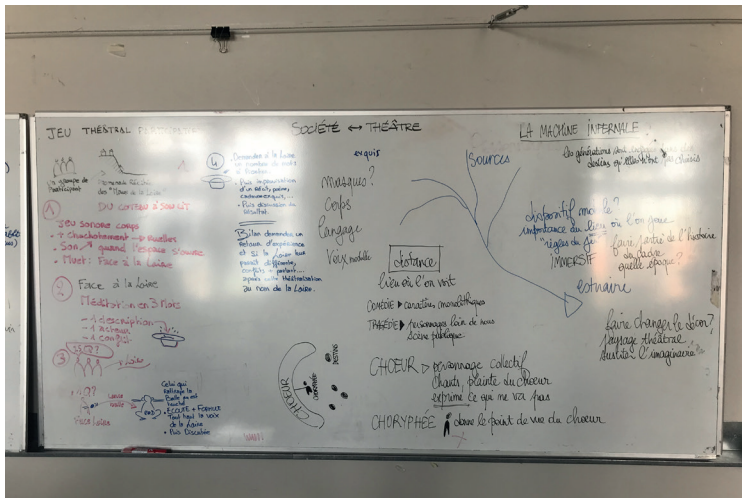 JEU THÉÂTRAL
SOCIÉTÉ ↔ THÉÂTRE
LA MACHINE INFERNALE
un groupe de
Participant
1
DU CONTEU À SON LIT
Jeu sonore corps
+ Chuchotement → ruelles
Son ↗ quand l'espace s'ouvre
Muet : Face à la Loire
2 Face à la Loire
Méditation en 3 Mots
- 1 description
- 1
- 1
3
Loire
Face Loire
Celui qui
Balle
touché
ECOUTE + FORMAT
la voix
de la Loire
+ Puis Discutée
4
Demander à la Loire
un nombre de mots
+ Puis improvisation
+ Puis discussion du
résultat.
Bilan demander un
retour d'expérience
et si la Loire
parait différente,
après cette théâtralisation
au nom de la Loire.
exquis
Masques ?
Corps
langage
Voix modelée
distance
lieu où l'on voit
COMÉDIE ► caractères monolithiques
TRAGÉDIE ► personnages loin de nous
scène politique
CHŒUR ▷ personnage collectif
Chants plainte du chœur
exprime ce qui ne va pas
CHORYPHÉE donne le point de vue du chœur
CHŒUR
CHORYPHÉE
DESTINS
Sources
estuaire
les générations sont
destins qu'elles n'ont pas choisis
dispositif mobile ?
importance du lieu où l'on joue
"règles du jeu"
IMMERSIF
faire partie de l'histoire
du cadre
quelle époque ?
faire changer le décor ?
paysage théâtral
susciter l'imaginaire